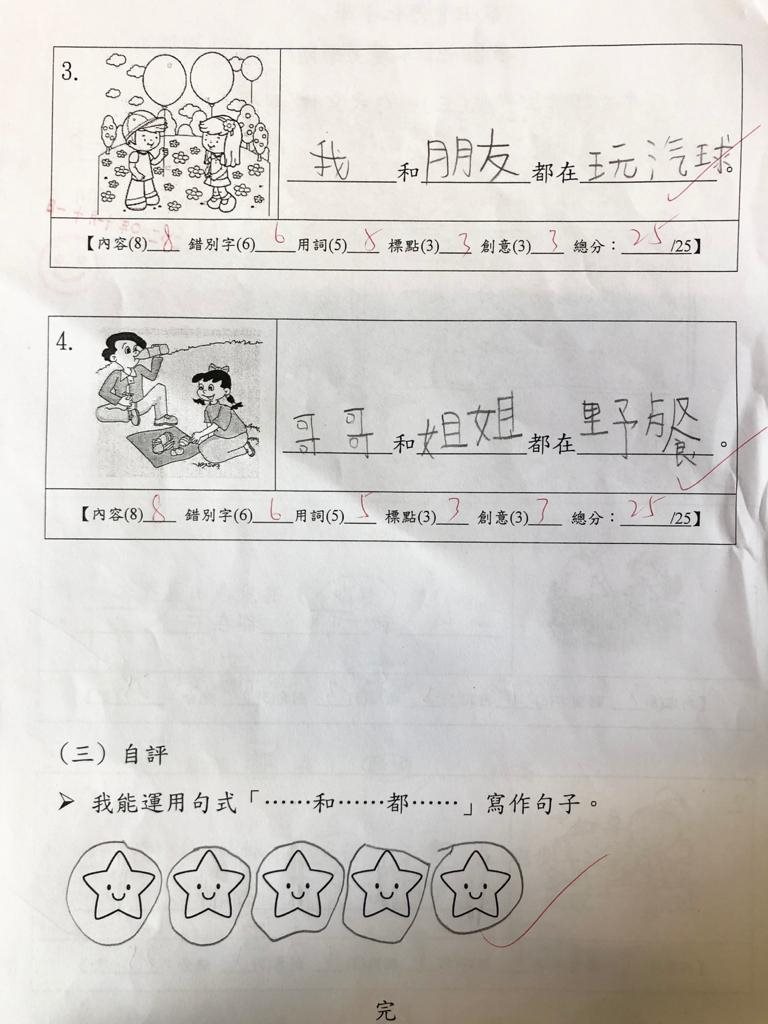 3.
我和朋友都在玩汽球。
【內容(8) 8 錯別字(6) 6 用詞(5) 5 標點(3) 3 創意(3) 3 總分：25/25】
4.
哥哥和姐姐都在野餐。
【內容(8) 8 錯別字(6) 6 用詞(5) 5 標點(3) 3 創意(3) 3 總分：25/25】
（三）自評
➢ 我能運用句式「……和……都……」寫作句子。
完